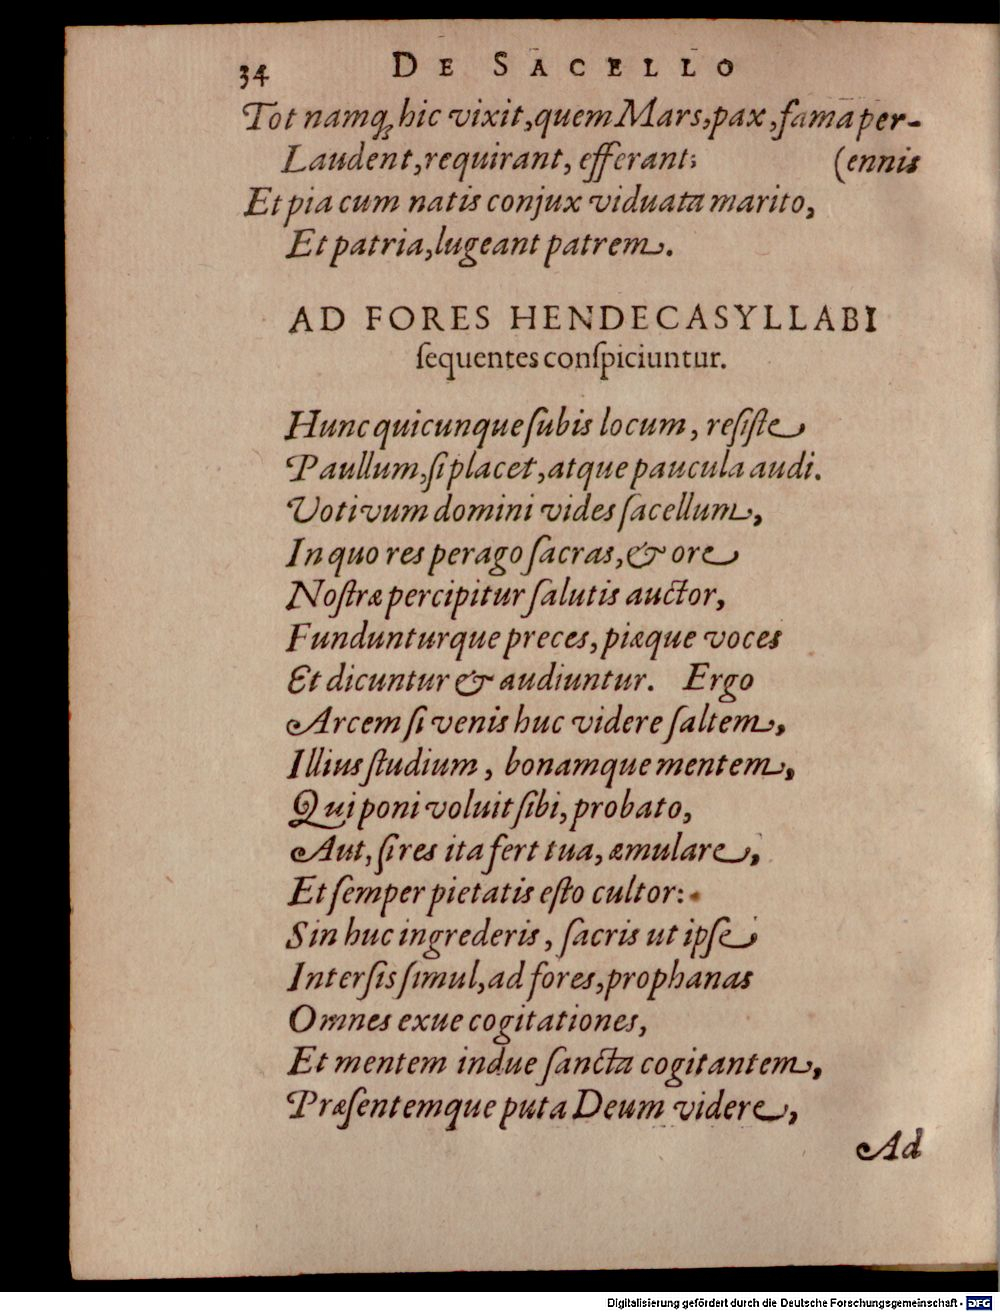 34 DE SACELLO
Tot namq́ꝫ hic vixit, quem Mars, pax, fama per-
Laudent, requirant, efferant; (ennis
Et pia cum natis conjux viduata marito,
Et patria, lugeant patrem.
AD FORES HENDECASYLLABI
ſequentes conſpiciuntur.
Hunc quicunque ſubis locum, reſiſte
Paullum, ſi placet, atque paucula audi.
Votivum domini vides ſacellum,
In quo res perago ſacras, & ore
Noſtræ percipitur ſalutis auctor,
Fundunturque preces, piæque voces
Et dicuntur & audiuntur. Ergo
Arcem ſi venis huc videre ſaltem,
Illius ſtudium, bonamque mentem,
Qui poni voluit ſibi, probato,
Aut, ſi res ita fert tua, æmulare,
Et ſemper pietatis eſto cultor:
Sin huc ingrederis, ſacris ut ipſe
Interſis ſimul, ad fores, prophanas
Omnes exue cogitationes,
Et mentem indue ſancta cogitantem,
Præſentemque puta Deum videre,
Ad
Digitalisierung gefördert durch die Deutsche Forschungsgemeinschaft - DFG